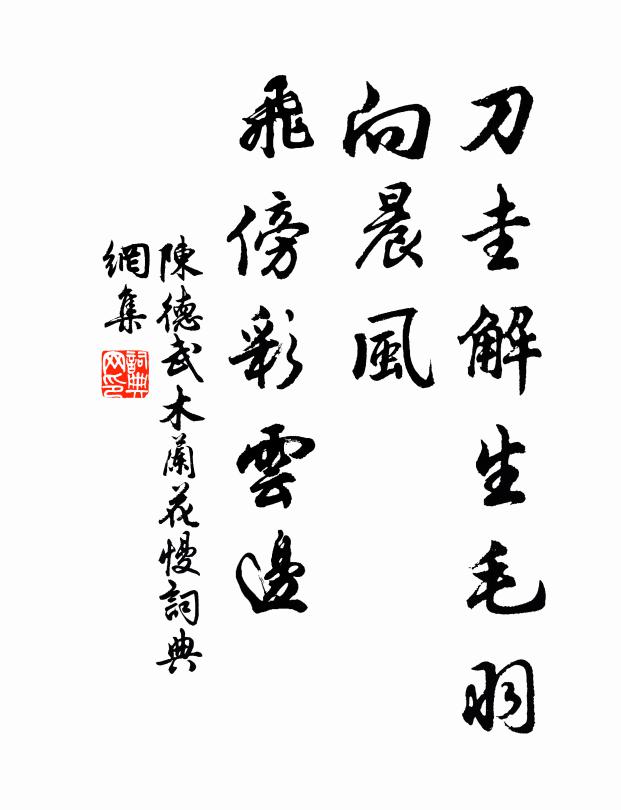 刀圭解生毛羽
向晨風
飛傍彩雲邊
陳德武木蘭花慢詞典
網集
詞典
网印